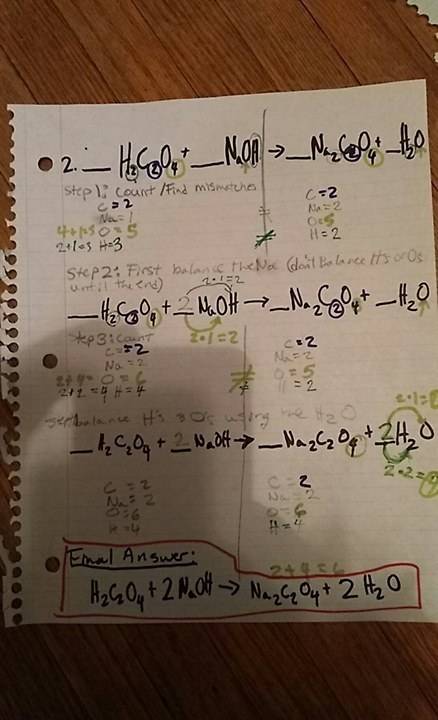 2. __ H₂C₂O₄ + __ NaOH → __ Na₂C₂O₄ + __ H₂O
Step 1: Count / Find mismatches
C = 2 C = 2
Na = 1 Na = 2
4+1=5 O = 5 ≠ O = 5
2+1=3 H = 3 H = 2
Step 2: First balance the Na (don't Balance H's or O's
until the end) 2·1=2
__ H₂C₂O₄ + 2 NaOH → __ Na₂C₂O₄ + __ H₂O
Step 3: Count 2·1=2
C = 2 C = 2
Na = 2 Na = 2
2+4= O = 6 ≠ O = 5
2+2=4 H = 4 H = 2
balance H's & O's using the H₂O 2·1=
__ H₂C₂O₄ + 2 NaOH → __ Na₂C₂O₄ + 2 H₂O
2·2=
C = 2 C = 2
Na = 2 Na = 2
O = 6 O = 6
H = 4 H = 4
Final Answer: 2+4=6
H₂C₂O₄ + 2 NaOH → Na₂C₂O₄ + 2 H₂O